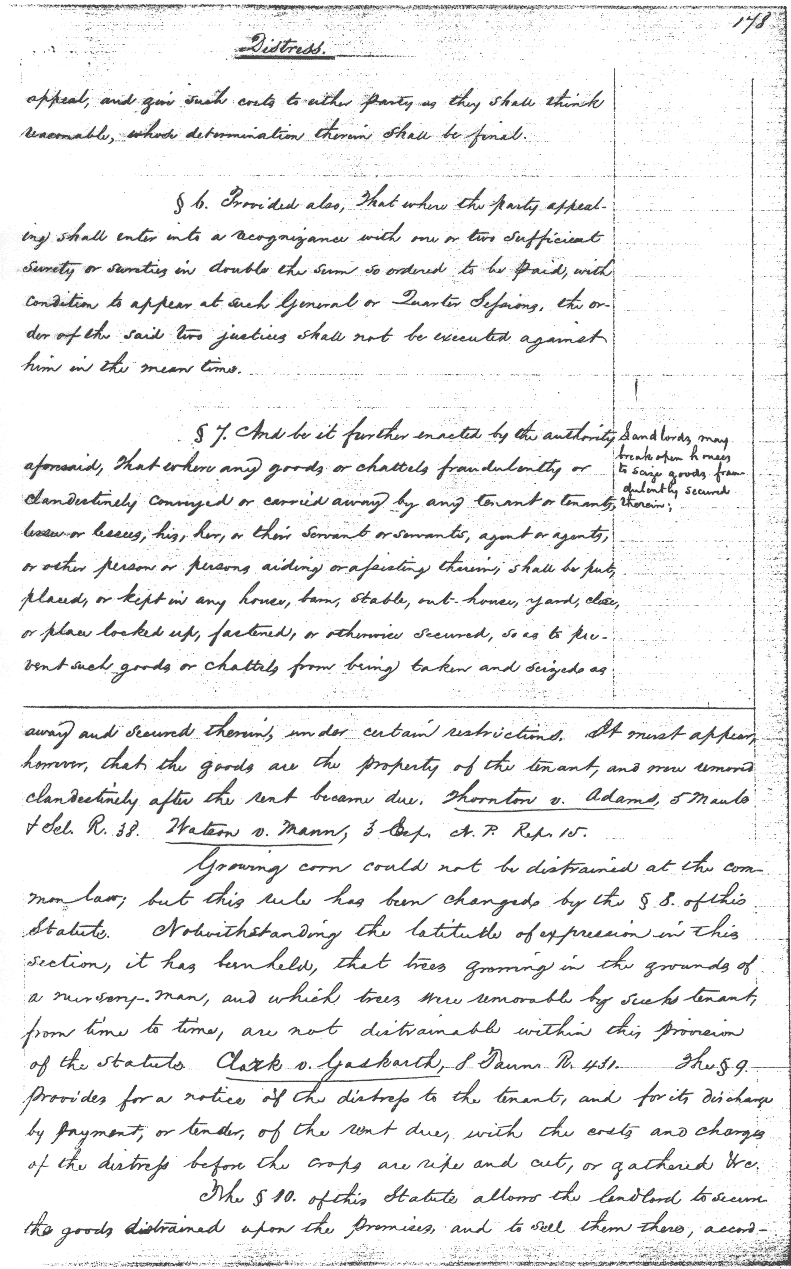 178
Distress.
appeal, and give such costs to either party as they shall think
reasonable, whose determination therein shall be final.
§ 6. Provided also, That where the party appeal-
ing shall enter into a recognizance with one or two sufficient
surety or sureties in double the sum so ordered to be paid, with
condition to appear at such General or Quarter Sessions, the or-
der of the said two justices shall not be executed against
him in the mean time.
§ 7. And be it further enacted by the authority
aforesaid, That where any goods or chattels fraudulently or
clandestinely conveyed or carried away by any tenant or tenants,
lessee or lessees, his, her, or their servant or servants, agent or agents,
or other person or persons aiding or assisting therein, shall be put,
placed, or kept in any house, barn, stable, out-house, yard, close,
or place locked up, fastened, or otherwise secured, so as to pre-
vent such goods or chattels from being taken and seized as
Landlords may
break open houses
to seize goods frau-
dulently secured
therein;
away and secured therein, under certain restrictions. It must appear,
however, that the goods are the property of the tenant, and were removed
clandestinely after the rent became due. Thornton v. Adams, 5 Maule
& Sel. R. 38. Watson v. Mann, 3 Esp. N. P. Rep. 15.
Growing corn could not be distrained at the com-
mon law; but this rule has been changed by the § 8. of this
Statute. Notwithstanding the latitude of expression in this
section, it has been held, that trees growing in the grounds of
a nursery-man, and which trees were removable by such tenant,
from time to time, are not distrainable within this provision
of the Statute. Clark v. Gaskarth, 8 Taun. R. 431. The § 9.
provides for a notice of the distress to the tenant, and for its discharge
by payment, or tender, of the rent due, with the costs and charges
of the distress before the crops are ripe and cut, or gathered &c.
The § 10. of this Statute allows the landlord to secure
the goods distrained upon the premises, and to sell them there, accord-